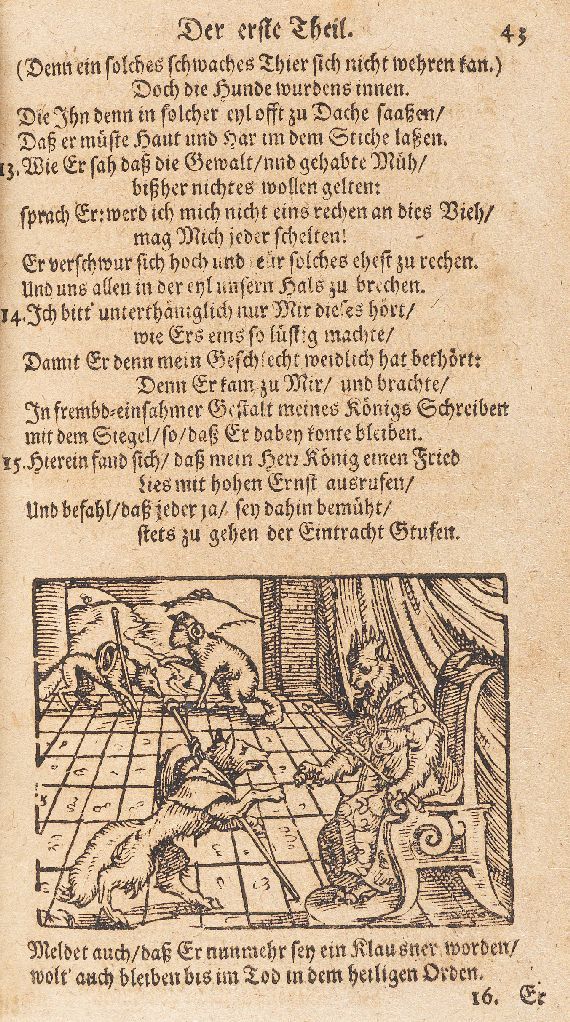 Der erste Theil. 43
(Denn ein solches schwaches Thier sich nicht wehren kan.)
Doch die Hunde wurdens innen.
Die Ihn denn in solcher eyl offt zu Dache saaßen/
Daß er müste Haut und Har im dem Stiche laßen.
13. Wie Er sah daß die Gewalt/und gehabte Müh/
bißher nichtes wollen gelten:
sprach Er:werd ich mich nicht eins rechen an dies Vieh/
mag Mich jeder schelten!
Er verschwur sich hoch und für solches ehest zu rechen.
Und uns allen in der eyl unsern Hals zu brechen.
14. Ich bitt' unterthäniglich nur Mir dieses hört/
wie Ers eins so lüstig machte/
Damit Er denn mein Geschlecht weidlich hat bethört:
Denn Er kam zu Mir/ und brachte/
In frembd-einsahmer Gestalt meines Königs Schreiben
mit dem Siegel/so/daß Er dabey konte bleiben.
15. Hierein fand sich/ daß mein Herr König einen Fried
Lies mit hohen Ernst ausrufen/
Und befahl/daß jeder ja/ sey dahin bemüht/
stets zu gehen der Eintracht Stufen.
Meldet auch/daß Er nunmehr sey ein Klausner worden/
wolt' auch bleiben bis im Tod in dem heiligen Orden.
16. Er